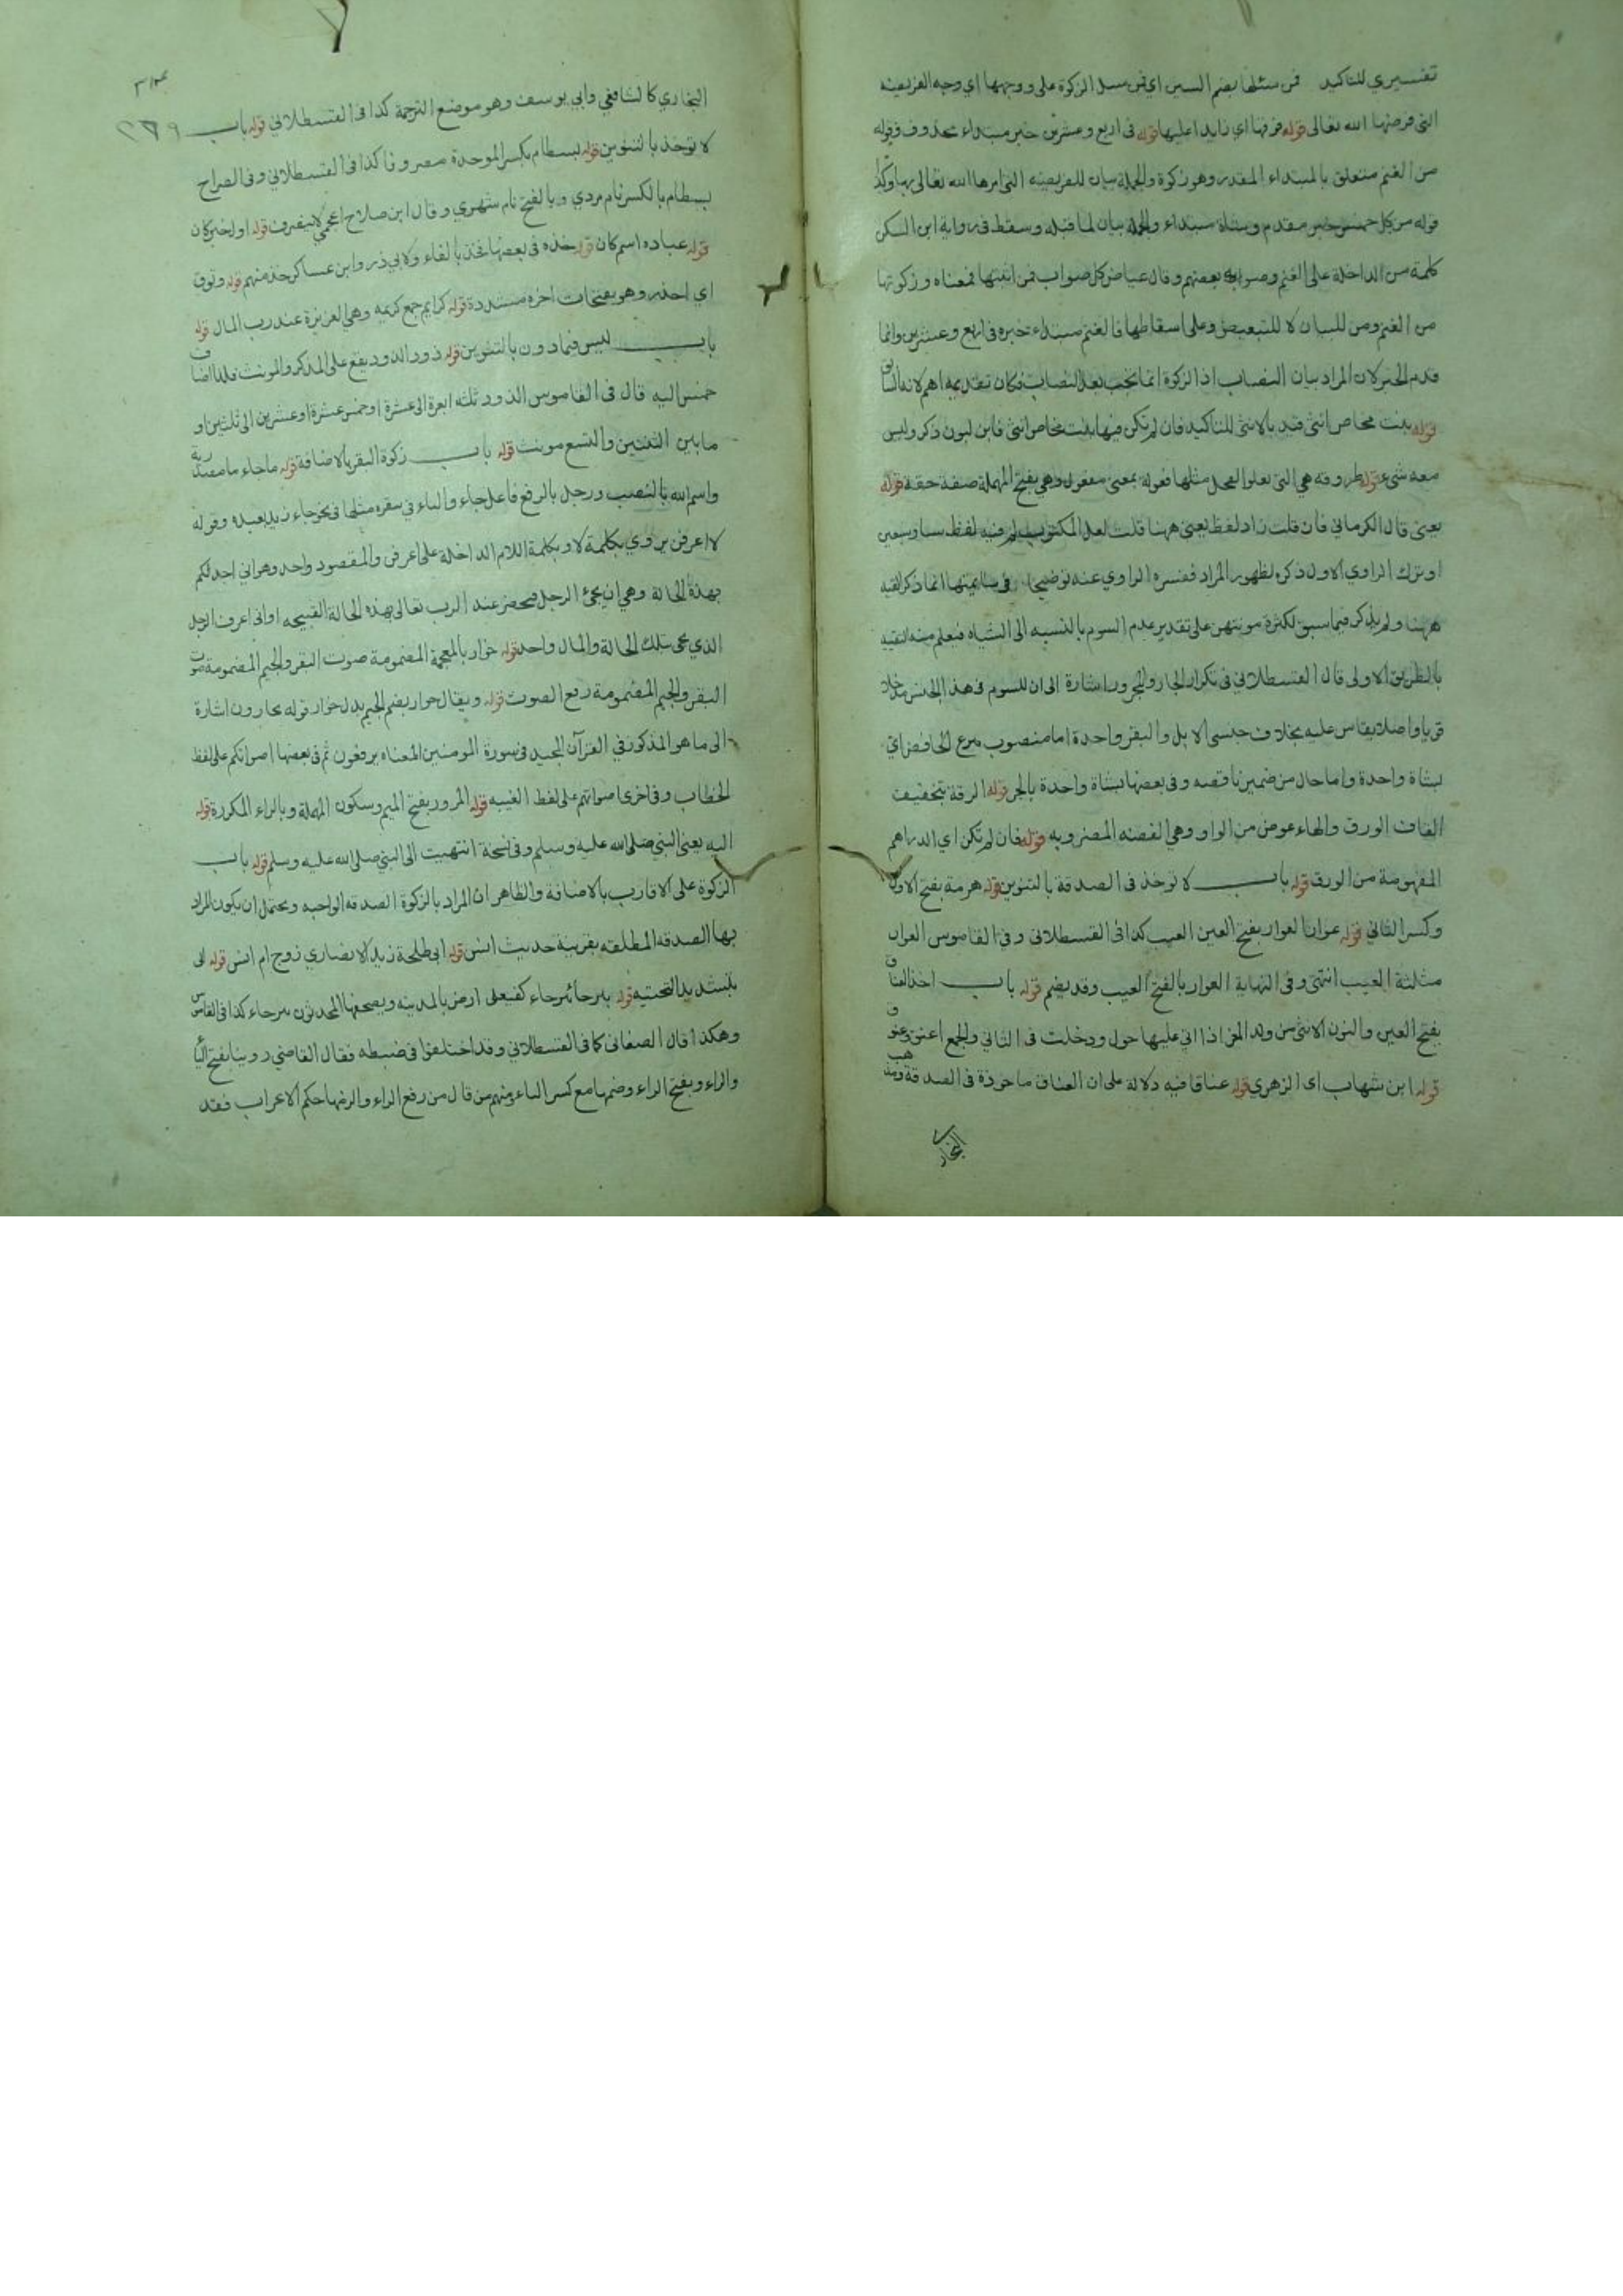 تفسيري للتاكيد فمن سئلها بضم السين اي فمن سئل الزكوة على ووجهها اي وجه الفريضة
التي فرضها الله تعالى قوله فوقها اي زايدا عليها قوله في اربع وعشرين خبر مبتداء محذوف وقوله
من الغنم متعلق بالمبتداء المقدر وهو زكوة والجملة بيان للفريضة التي امرها الله تعالى بها وكذا
قوله من كل خمس خبر مقدم وشاة مبتداء والجملة بيان لما قبله وسقط في رواية ابن السكن
كلمة من الداخلة على الغنم وصوابه بعضهم وقال عياض كل صواب فمن اثبتها فمعناه وزكوتها
من الغنم ومن للبيان لا للتبعيض وعلى اسقاطها فالغنم مبتداء خبره في اربع وعشرين وانما
قدم الخبر لان المراد بيان النصاب اذا الزكوة انما يجب بعد النصاب فكان تقديمه اهم لانه السابق
قوله بنت مخاض انثى قيد بالانثى للتاكيد فان لم تكن فيها بنت مخاض انثى فابن لبون ذكر وليس
معه شيء قوله طروقه هي التي يعلوا الفحل مثلها فعولة بمعنى مفعول وهي بفتح المهملة صفة حقة قوله
يعني قال الكرماني فان قلت زاد لفظ يعني ههنا قلت لعل المكتوب لم فيه لفظ ستا وسبعين
او ترك الراوي الاول ذكره لظهور المراد ففسره الراوي عنه توضيحا في سايمتها انما ذكر القيد
ههنا ولم يذكر فيما سبق لكثرة مونتهن على تقدير عدم السوم بالنسبه الى الشياه فيعلم منه القيد
بالطريق الاولى قال القسطلاني في تكرار الجار والمجرور اشارة الى ان للسوم في هذا الجنس مدخلا
قويا واصلا يقاس عليه بخلاف جنسي الابل والبقر واحدة اما منصوب بنزع الخافض اي
بشاة واحدة واما حال من ضمير ناقصه وفي بعضها بشاة واحدة بالجر قوله الرقة بتخفيف
القاف الورق والهاء عوض من الواو وهي الفضه المضروبه قوله فان لم تكن اي الدراهم
المفهومة من الورق قوله باب لا توخذ في الصدقة بالتنوين قوله هرمة بفتح الاول
وكسر الثاني قوله عوار العوار بفتح العين العيب كذا في القسطلاني وفي القاموس العوار
مثلثة العيب انتهى وفي النهاية العوار بالفتح العيب وقد يضم قوله باب اخذ العناق
بفتح العين والنون الانثى من ولد المعز اذا اتى عليها حول ودخلت في الثاني والجمع اعنق وعنوق
قوله ابن شهاب اى الزهري قوله عناقا فيه دلالة على ان العناق ماخوذة في الصدقة ومذهب
البخاري
البخاري كالشافعي وابي يوسف وهو موضع الترجمة كذا في القسطلاني قوله باب
لا توخذ بالتنوين قوله بسطام بكسر الموحدة مصروفا كذا في القسطلاني وفي الصراح
بسطام بالكسر نام مردي وبالفتح نام شهري وقال ابن صلاح اعجمي لا ينصرف قوله اول خبر كان
قوله عباده اسم كان قوله خذه في بعضها فخذ بالفاء ولابي ذر وابن عساكر خذ منهم قوله وتوق
اي احذر وهو بفتحات اخره مشددة قوله كرايم جمع كريمه وهي العزيزة عند رب المال قوله
باب ليس فيما دون بالتنوين قوله ذود الذود يقع على المذكر والمونث فلذا اضاف
خمس اليه قال في القاموس الذود ثلثه ابعرة الى عشرة او خمس عشرة او عشرين الى ثلثين او
ما بين الثنتين والتسع مونث قوله باب زكوة البقر بالاضافة قوله ما جاء ما مصدرية
واسم الله بالنصب ورجل بالرفع فاعل جاء والباء في ببقره مثلها في نحو جاء زيد بعبده وقوله
لاعرفن يروي بكلمة لا وبكلمة اللام الداخلة على اعرفن والمقصود واحد وهو اني اجدلكم
بهذه الحالة وهي ان يجئ الرجل فيحضر عند الرب تعالى بهذه الحالة القبيحه او اني اعرف الرجل
الذي يجى بتلك الحالة والمال واحد قوله خوار بالمعجمة المضمومة صوت البقر والجيم المضمومة صوت
البقر والجيم المضمومة رفع الصوت قوله ويقال جوار بضم الجيم بدل خوار قوله يجارون اشارة
الى ما هو المذكور في القرآن المجيد في سورة المومنين المعناه يرفعون ثم في بعضها اصواتكم على لفظ
الخطاب وفي اخرى اصواتهم على لفظ الغيبه قوله المعرور بفتح الميم وسكون المهملة وبالراء المكررة قوله
اليه يعني النبي صلى الله عليه وسلم وفي نسخة انتهيت الى النبي صلى الله عليه وسلم قوله باب
الزكوة على الاقارب بالاضافة والظاهر ان المراد بالزكوة الصدقه الواجبه ويحتمل ان يكون المراد
بها الصدقه المطلقه بقرينة حديث انس قوله ابي طلحة زيد الانصاري زوج ام انس قوله الى
بتشديد التحتيه قوله بيرحا بيرحاء كفيعلى ارض بالمدينه ويصحفها المحدثون بئر حاء كذا في القاموس
وهكذا قال الصغاني كما في القسطلاني وقد اختلفوا في ضبطه فقال القاضي روينا بفتح الباء
والراء وبفتح الراء وضمها مع كسر الباء ومنهم من قال من رفع الراء والزمها حكم الاعراب فقد